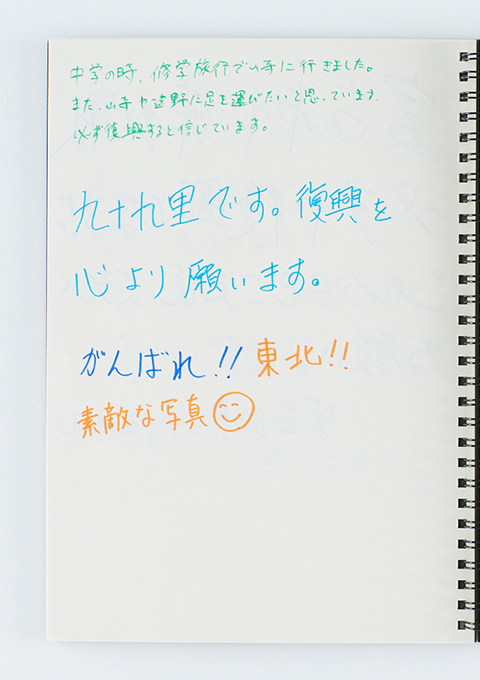 中学の時、修学旅行で山寺に行きました。
また、山寺や遠野に足を運びたいと思っています。
必ず復興すると信じています。
九十九里です。復興を
心より願います。
がんばれ!! 東北!!
素敵な写真